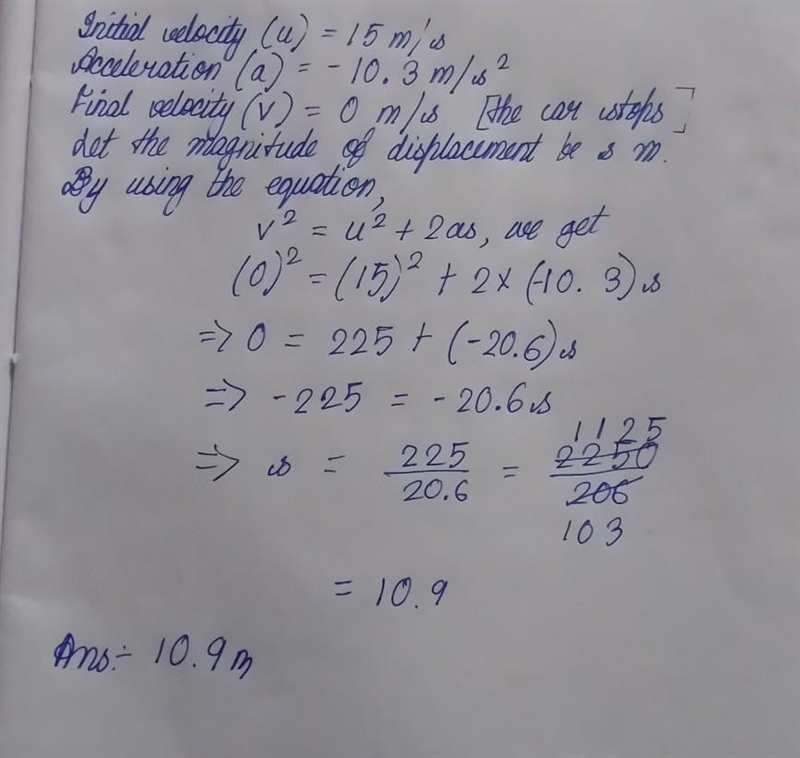 Initial velocity (u) = 15 m/s
Acceleration (a) = - 10.3 m/s²
Final velocity (v) = 0 m/s [the car stops]
Let the magnitude of displacement be s m.
By using the equation,
v² = u² + 2as, we get
(0)² = (15)² + 2 x (-10. 3) s
=> 0 = 225 + (-20.6)s
=> -225 = - 20.6s
=> s = 225/20.6 = 2250/206
1125
103
= 10.9
Ans:- 10.9m